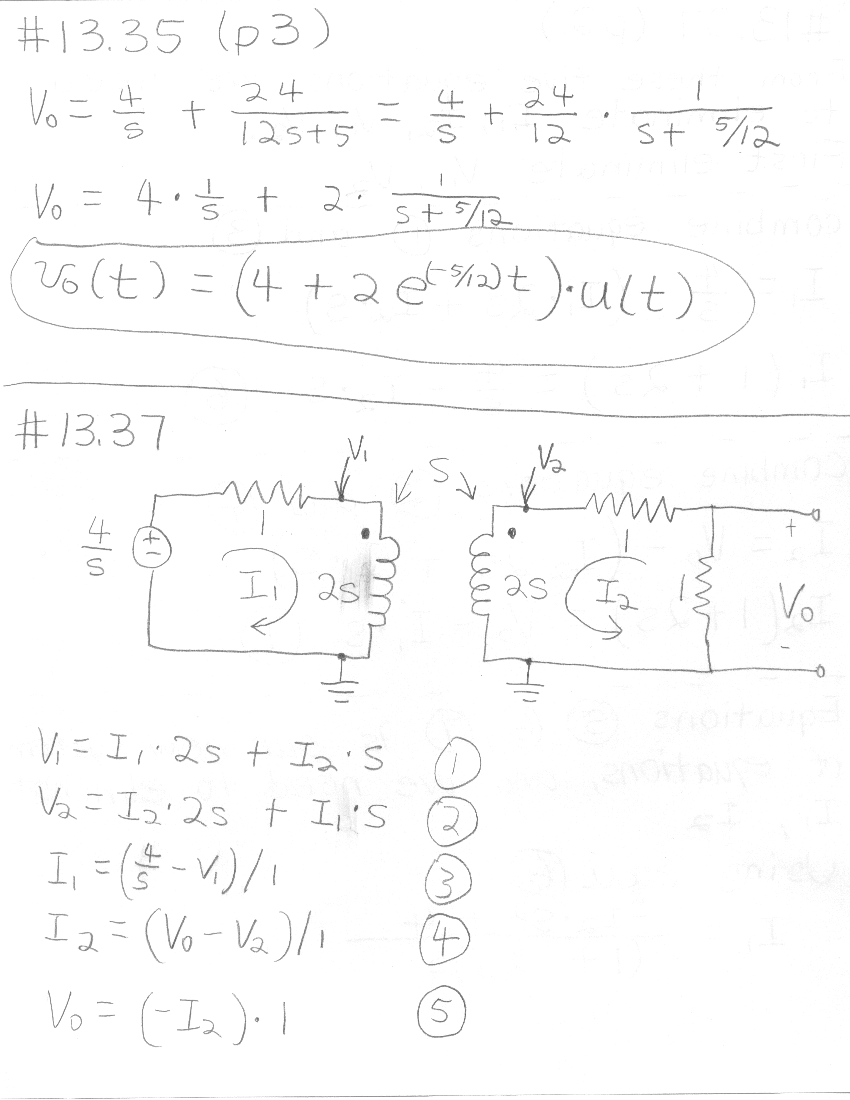 #13.35 (p3)
V₀ = 4/s + 24/(12s+5) = 4/s + 24/12 · 1/(s+ 5/12)
V₀ = 4 · 1/s + 2 · 1/(s + 5/12)
v₀(t) = (4 + 2 e^(-5/12)t)·u(t)
#13.37
V₁ S V₂
4/s 1 1 +
I₁ 2s 2s I₂ 1 V₀
-
V₁ = I₁·2s + I₂·s ①
V₂ = I₂·2s + I₁·s ②
I₁ = (4/s - V₁)/1 ③
I₂ = (V₀ - V₂)/1 ④
V₀ = (-I₂)·1 ⑤